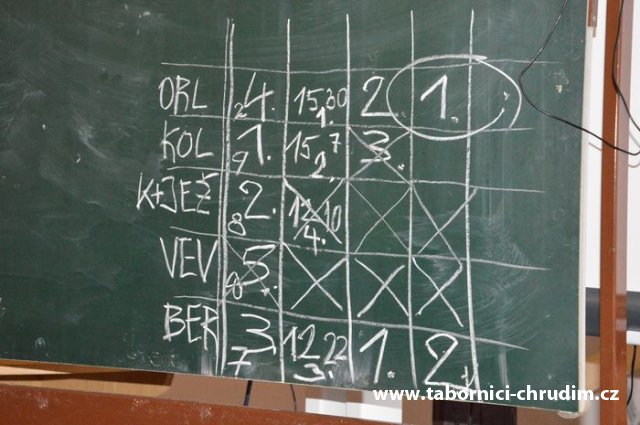 ORL 2 4. 15,30 1. 2. 1.
KOL 9 1. 15,7 2. 3.
K+JEŽ 8 2. 12,10 4.
VEV 5.
BER 7 3. 12,22 3. 1. 2.
www.tabornici-chrudim.cz